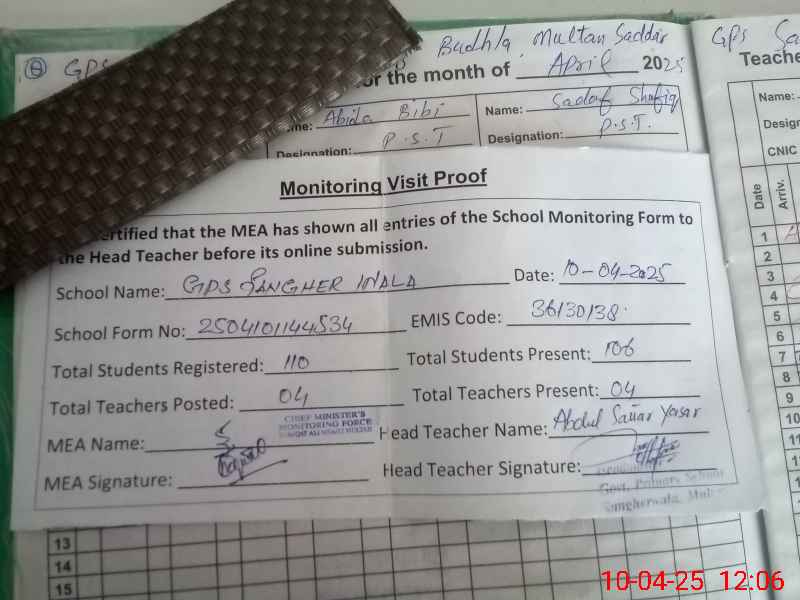 GPS Budhla Multan Saddar
for the month of April 2025
Name: Abida Bibi Name: Sadaf Shafiq
Designation: P.S.T Designation: P.S.T.
GPS
Teache
Name:
Design
CNIC
Date Arriv.
1
2
3
4
5
6
7
8
9
10
11
Monitoring Visit Proof
ertified that the MEA has shown all entries of the School Monitoring Form to
the Head Teacher before its online submission.
School Name: GPS SANGHER WALA Date: 10-04-2025
School Form No: 2504101144534 EMIS Code: 36130138
Total Students Registered: 110 Total Students Present: 106
Total Teachers Posted: 04 Total Teachers Present: 04
CHIEF MINISTER'S
MONITORING FORCE
MEA Name: Head Teacher Name: Abdul Sattar Yasar
MEA Signature: Head Teacher Signature:
Govt. Primary School
Sangherwala, Mul
13
14
15
10-04-25 12:06